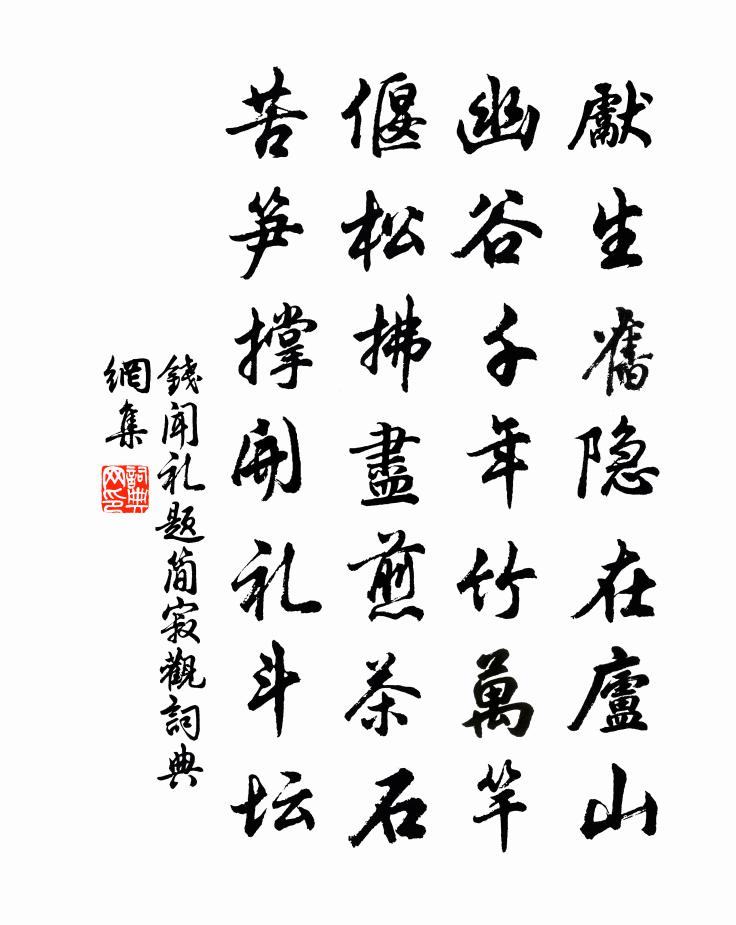 獻生舊隐在廬山
幽谷千年竹萬竿
偃松拂盡煎茶石
苦笋撑開礼斗坛
錢聞礼题简寂觀詞典
網集
詞典網印